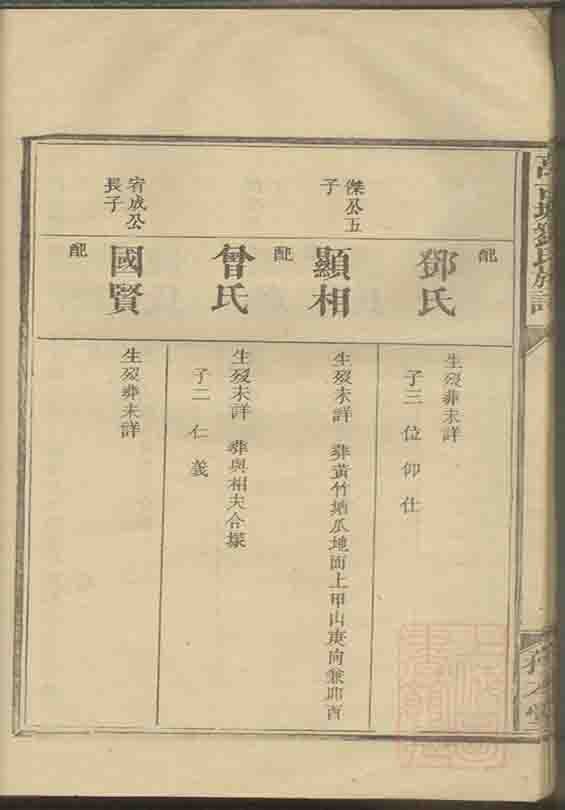 劉氏族譜
配
鄧氏
生歿葬未詳
子三 位 仰 仕
傑公五
子
顯相
生歿未詳 葬黃竹塘瓜地面上甲山庚向兼卯酉
配
曾氏
生歿未詳 葬與相夫合墓
子二 仁 義
宥成公
長子
國賢
生歿葬未詳
配